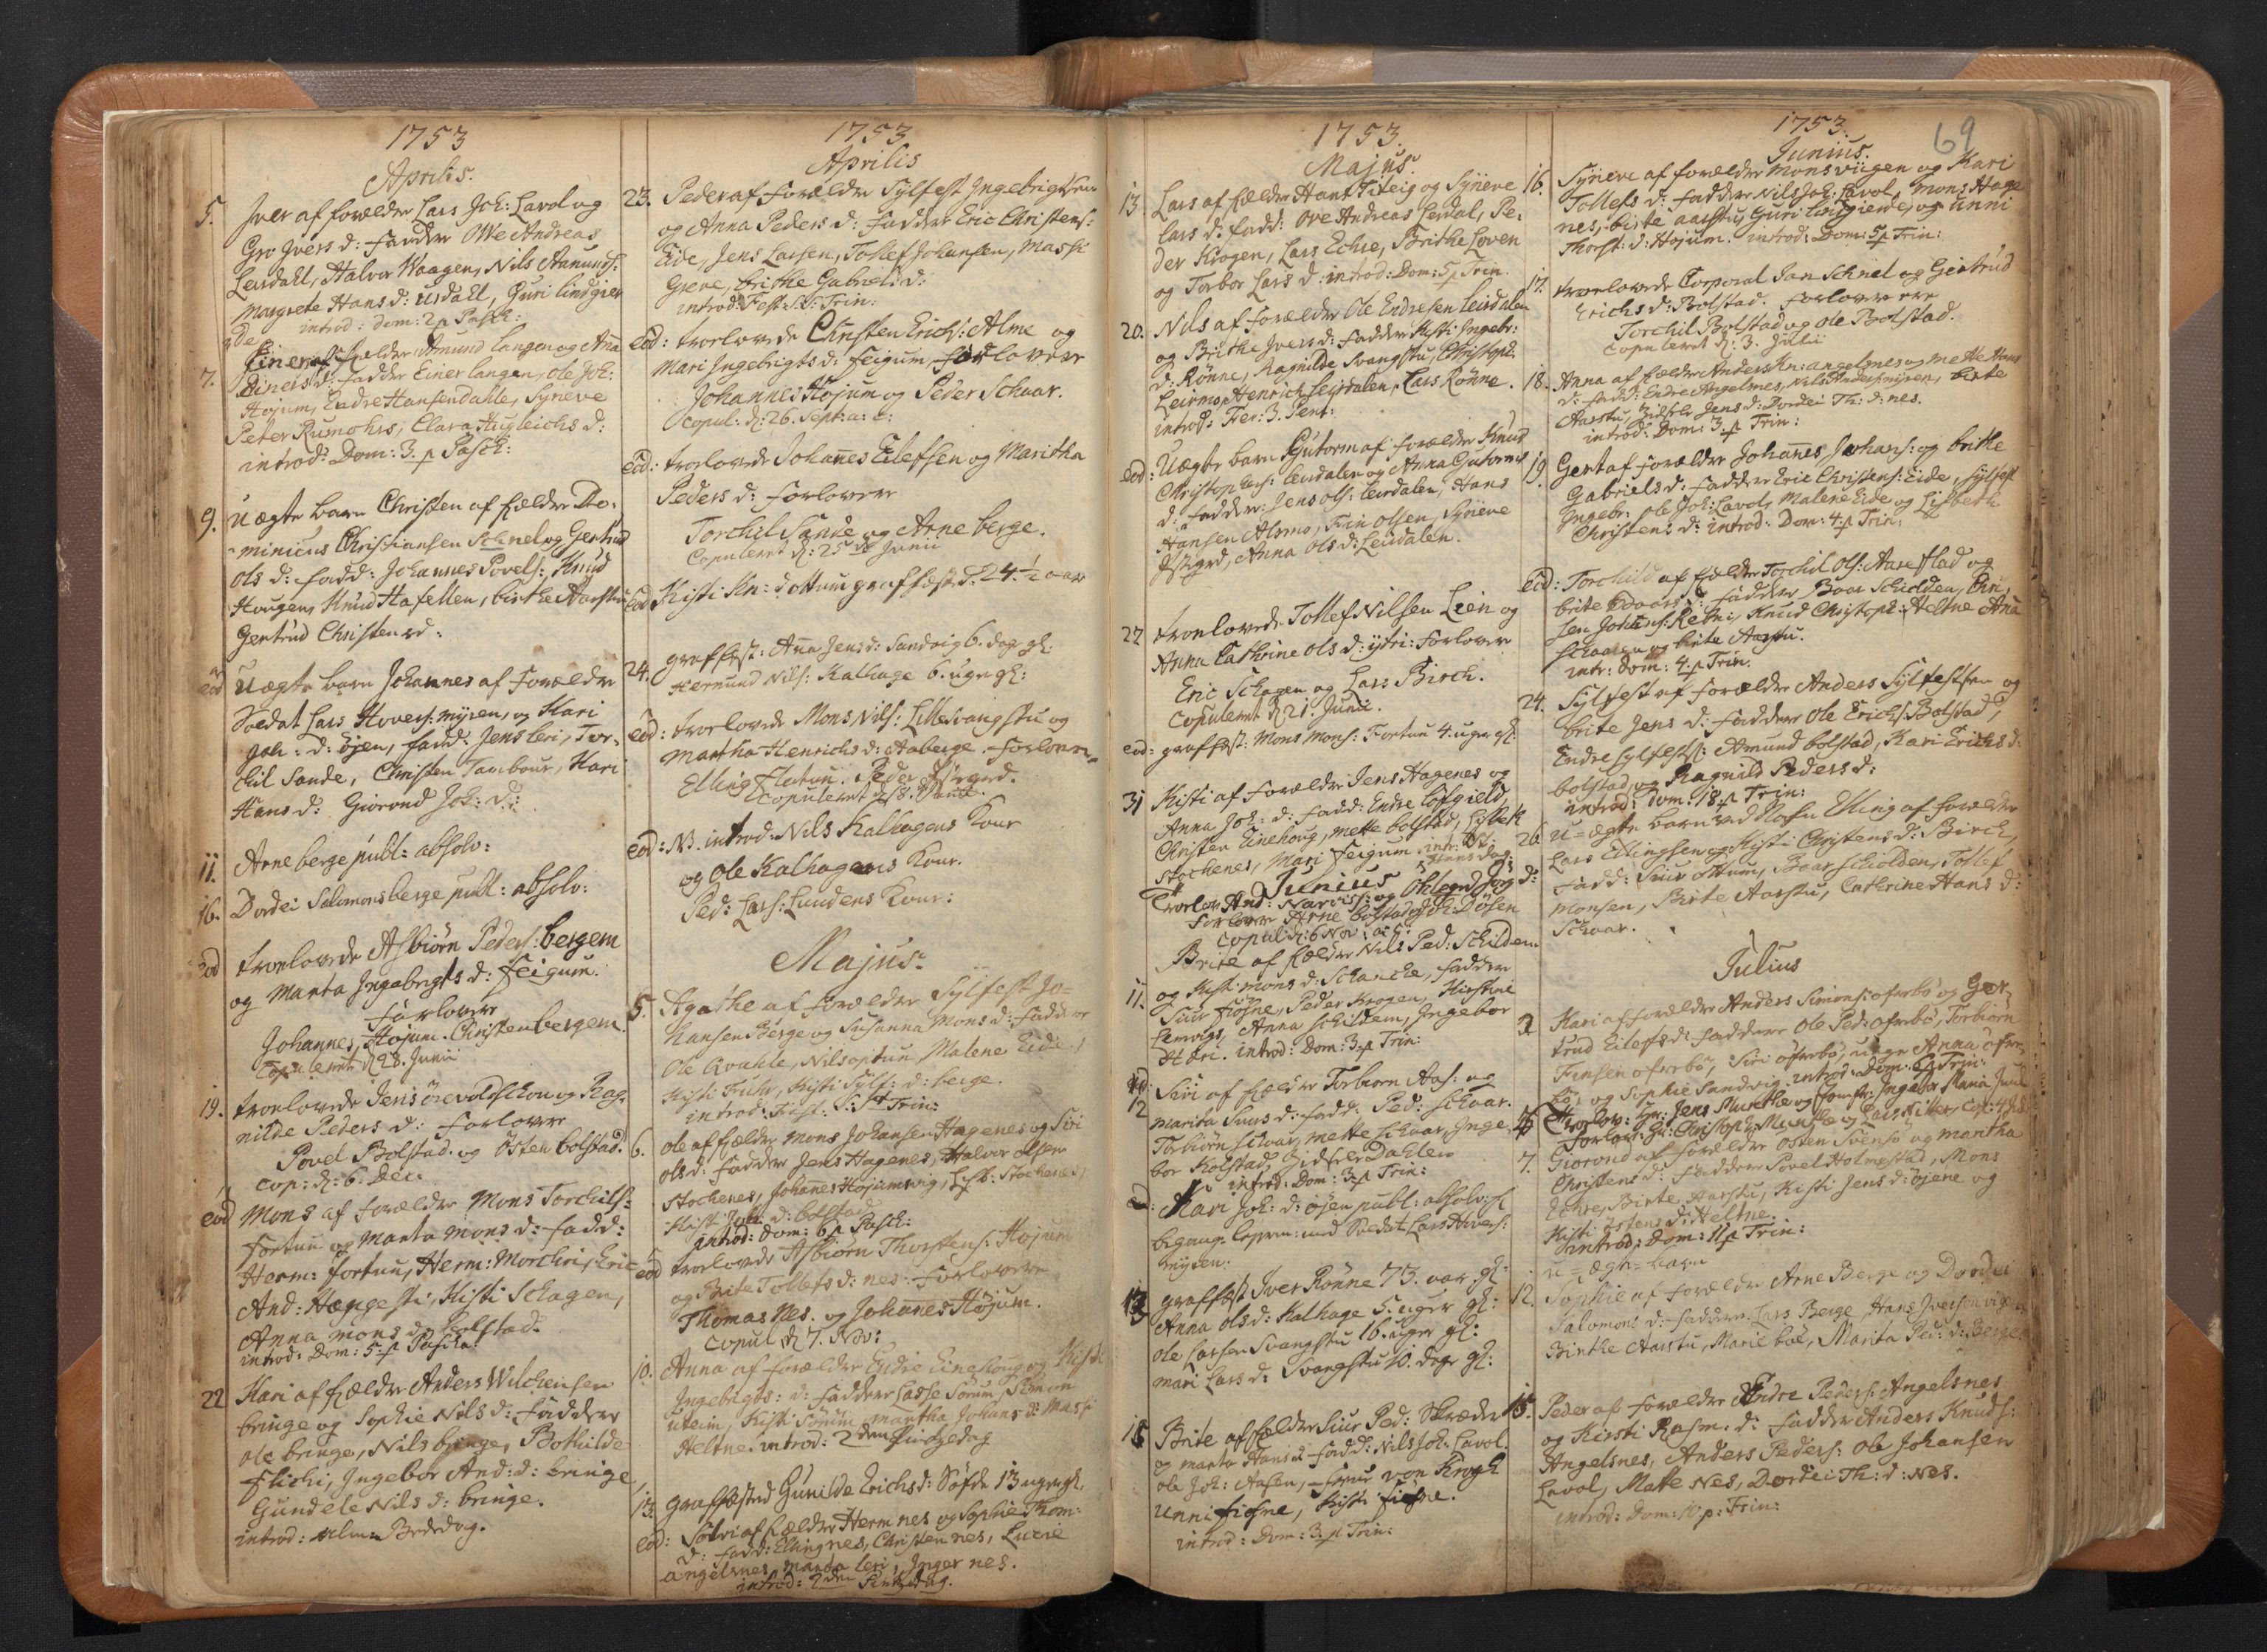 1753
Aprilis.
5. Iver af forældre Lars Joh: Lavol og
Gro Ivers d: faddere Owe Andreas
Leirdahl, Halvor Waagen, Nils Amunds:
Margrete Hans d: Usdahl, Guri lindgier
de introd: dom: 2 p Pasch:
7. Einer af fældre Amund Langen og Ana
Einers d: fadder Einer langen, Ole Joh:
Højum, Endre Hansen dahle, Syneve
Peter Rumohrs, Clara Hugleichs d:
introd: Dom: 3. p Pasch:
9. Uægte barn Christen af fældre Do-
minicus Christiansen Schnel og Gertrud
Ols d: fadd: Johannes Povels: Knud
Hougen, Knud Hafellen, birthe Aarstu
Gertrud Christens d:
eod Uægte barn Johannes af forældre
Soldat Lars Hovers: myren, og Kari
Joh: d: øjen, fadd: Jens leri, Tor-
chil Sande, Christen Tambour, Kari
Hans d: Giorond Joh: d:
11. Arne berge publ: absolv:
16. Dordei Salomons berge publ: absolv:
eod trovlovede Asbiørn Peders: bergem
og Marta Ingebrigts d: feigum.
forlovere
Johannes Højum. Christen bergem.
Copuleret d 28. Junii
19. trovlovede Jens ørevoldschou og Rag-
nilde Peders d: forlovere
Povel Bolstad. og Østen bolstad.
cop: d: 6. Dec.
eod Mons af forældre Mons Torchils:
fortun og Marta Mons d: fadd:
Herm: fortun, Herm: Morchri, Eric
And: Hængesti, Kisti Schagen,
Anna Mons d: bolstad.
introd: Dom: 5 p Pascha
22 Kari af fældre Anders Wilchensen
bringe og Sophie Nils d: faddere
Ole bringe, Nils bringe, Bothilde
Flichi, Ingebor And: d: bringe
Gundele Nils d: bringe.
introd: alm: Bededag.
1753
Aprilis
23. Peder af forældre Sylfest Ingebrigtsen
og Anna Peders d: faddere Eric Christens:
Eide, Jens Larsen, Tollef Johansen, Massi
Greve, birthe Gabriels d:
introd: Fest: S.S: Trin:
eod: trovlovede Christen Erichs: Alme og
Mari Ingebrigts d: feigum, forlovere
Johannes Højum og Peder Schaar.
Copul: d: 26. Sept: a: c:
eod: trovlovede Johannes Eilefsen og Maritha
Peders d: forlovere
Torchil Sande og Arne berge.
Copuleret d: 25 Junii
eod Kisti Kn: d ottum graffæst: d: 24. ½ aar
24. graffæst: Anna Jens d: Sandvig 6. dag gl:
Hermund Nils: Kalhage 6. uger gl:
eod: trovlovede Mons Nils: Lillesvangstu og
Martha Henrichs d: Aaberge. forlovere
Elling flatun. Peder
Copuleret
eod: NB. introd: Nils Kalhagens Kone
og Ole Kalhagens Kone.
Ped: Lars: Lundens Kone:
Majus.
5. Agathe af forældre Sylfest Jo-
hansen Berge og Susanna Mons d: faddere
Ole Qvahle, Nils optun, Malene Eide,
Kisti Fuhr, Kisti Sylf: d: berge.
introd: Fest: S: S: Trin:
6. Ole af fældre Mons Johansen Hagenes og Siri
Ols d: faddere Jens Hagenes, Halvor Olsen
Stochenes, Johannes Højumsvig, Lisb: Stochenes,
Kisti Joh: d: bolstad
introd: Dom: 6 p Pasch:
eod trovlovede Asbiørn Thorstens: Højum
og Brite Tollefs d: nes. forlovere
Thomas Nes. og Johannes Højum.
Copul d 7. Nov:
10. Anna af forældre Endre Einehoug og Kisti
Ingebrigts: d: faddere Lasse Sørum, Simon
Uteim, Kisti Sørum, Martha Johans d: Massi
Heltne. introd: 2den Pindzedag
13. graffæsted Gunilde Erichs d: Søfde 13 uger gl.
eod: Sølvi af fældre Herm nes og Sophie Thom:
d: fadd: Elling nes, Christen nes, Lucie
angelsnes, Marta leri, Inger nes.
introd: 2den Pintzedag.
1753.
Majus.
13. Lars af fældre Hans Titeig og Syneve
Lars d: fadd: Ove Andreas Leirdal, Pe-
der Krogen, Lars Echre, Brithe Loven
og Torbor Lars d: introd: Dom: 5 p Trin.
20. Nils af forældre Ole Endresen leirdalen
og Brithe Ivers d: faddere Kisti Ingebr:
d: Rønne, Ragnilde Svangstu, Christoph
Leirmo, Henrich Leirdalen, Lars Rønne.
introd: Fer: 3. Pent:
eod: Uægte barn Gutorm af forældre Knud
Christophers: leirdalen og Anna Gutorms
d: faddere: Jens Ols: leirdalen, Hans
Hansen Alsmo, Trin Olsen, Syneve
Anna Ols d: Leirdalen.
27 trovlovede Tollef Nilsen Lien og
Anna Cathrine Ols d: ytri: forlovere
Eric Schagen og Lars Birch.
Copuleret d 21. Junii.
eod: graffæst: Mons Mons: Fortun 4. uger gl:
31 Kisti af forældre Jens Hagenes og
Anna Joh: d: fadd: Endre lofgield,
Christen Einehoug, Mette bolstad, Lisbeth
Stochenes, Mari feigum. intr: St.
Hans dag.
Junius
Trovlov: And: Narviss: og Ohlegrd Jørg d:
forlovere Arne bolstad og Døsen
Copul: d: 6 Nov: a: c:
11. Brite af fældre Nils Ped: Schildem
og Kisti Mons d: Schanche, faddere
Siur fiøsne, Peder Krogen, Kirstine
Lemvigs, Anna Schildem, Ingebor
introd: Dom: 3. p Trin:
12 Siri af fældre Torbiørn Aas: og
Marita Siurs d: fadd: Ped: Schaar.
Torbiørn Schaar, Mette Schaar, Inge-
bor Kolstad, Zidsele Dahlen
introd: Dom: 3. p Trin:
eod: Kari Joh: d: øjen publ: absolv:
begaag: leierm: med Soldat Lars Hovers:
myren:
13 graffæst Iver Rønne 73. aar gl:
Anna Ols d: Kalhage 5. uger gl:
Ole Larsen Svangstu 16. uger gl:
Mari Lars d: Svangstu 10. dage gl:
15 Brite af fældre Siur Ped: Skræder
og Marta Hans d: fadd: Nils Joh: Lavol.
Ole Joh: Aasen, von Krogh
Unni fiøsne, Kisti fiøsne.
introd: Dom: 3. p Trin:
1753. 69
Junius.
16. Syneve af forældre Mons viigen og Kari
Tollefs d: faddere Nils Joh: Lavol, Mons Hage
nes, birte aarstu, Guri lindgierde, og Unni
Thorst: d: Højum. introd: Dom: 5 p Trin:
17. trovlovede Corporal Jan Schnel og Giertrud
Erichs d: Bolstad. forlovere ere
Torchil Bolstad og Ole Bolstad.
Copuleret d: 3. Julii
18. Anna af fældre Anders Kn: angelsnes og Mette Hans
d: fadd: Endre Angelsnes, Nils Anders: myren, birte
Aarstu, Zidsele Jens d: Dordei Th: d: nes.
introd: Dom: 3. p Trin:
19 Gert af forældre Johannes Johans: og brithe
Gabriels d: faddere Eric Christens: Eide, Sylfest
Ingebr: Ole Joh: Lavol, Malene Eide og Lisbeth
Christens d: introd: Dom: 4. p Trin:
Eod: Torchild af fældre Torchil Ols: Aarestad og
brite Boors d: faddere Boor Schiolden, Chri-
sen Johans: Rebni, Knud Christoph: Heltne Ana
Schagen og birte Aarstu.
intr: Dom: 4. p Trin.
24. Sylfest af forældre Anders Sylfestsen og
brite Jens d: faddere Ole Erichs: Bolstad,
Endre Sylfests: Amund bolstad, Kari Erichs d:
bolstad, og Ragnild Peders d:
introd: Dom: 18. p Trin:
26. U-ægte barn ved Nafn Elling af forældre
Lars Ellingsen og Kisti Christens d: Birch,
fadd: Siur Ottum, Boar Schiolden, Tollef
Monsen, Birte Aarstu, Cathrine Hans d:
Schaar.
Julius
2 Kari af forældre Anders Simons: ofrebø og Ger-
trud Eilefs d: faddere Ole Ped: ofrebø, Torbiørn
Finsen ofrebø, Siri ofrebø, unge Anna ofre-
bø, og Sophie Sandvig. introd: Dom: 6 p Trin:
Trovlov: Hr: Jens Munthe og Jomfr: Ingebor Maria Juul
forlov: Hr: Christopher Munthe og Lars Ritter, Cop: 4 Jul:
7. Giorond af forældre Østen Svens: og Martha
Christens d: faddere Povel Holmestad, Mons
Echre, Birte Aarstu, Kisti Jens d: øjene og
Kisti Østens d: Heltne.
introd: Dom: 11 p Trin:
u-ægte barn
12. Sophie af forældre Arne Berge og Dordei
Salomons d: faddere Lars Berge, Hans Iverson vigen
Birthe Aarstu, Marie boe, Marita Ped: d: Berge
15. Peder af forældre Endre Peders: Angelsnes
og Kirsti Rasm: d: faddere Anders Knuds:
Angelsnes, Anders Peders: Ole Johansen
Lavol, Mette Nes, Dordei Th: d: Nes.
introd: Dom: 10. p: Trin: